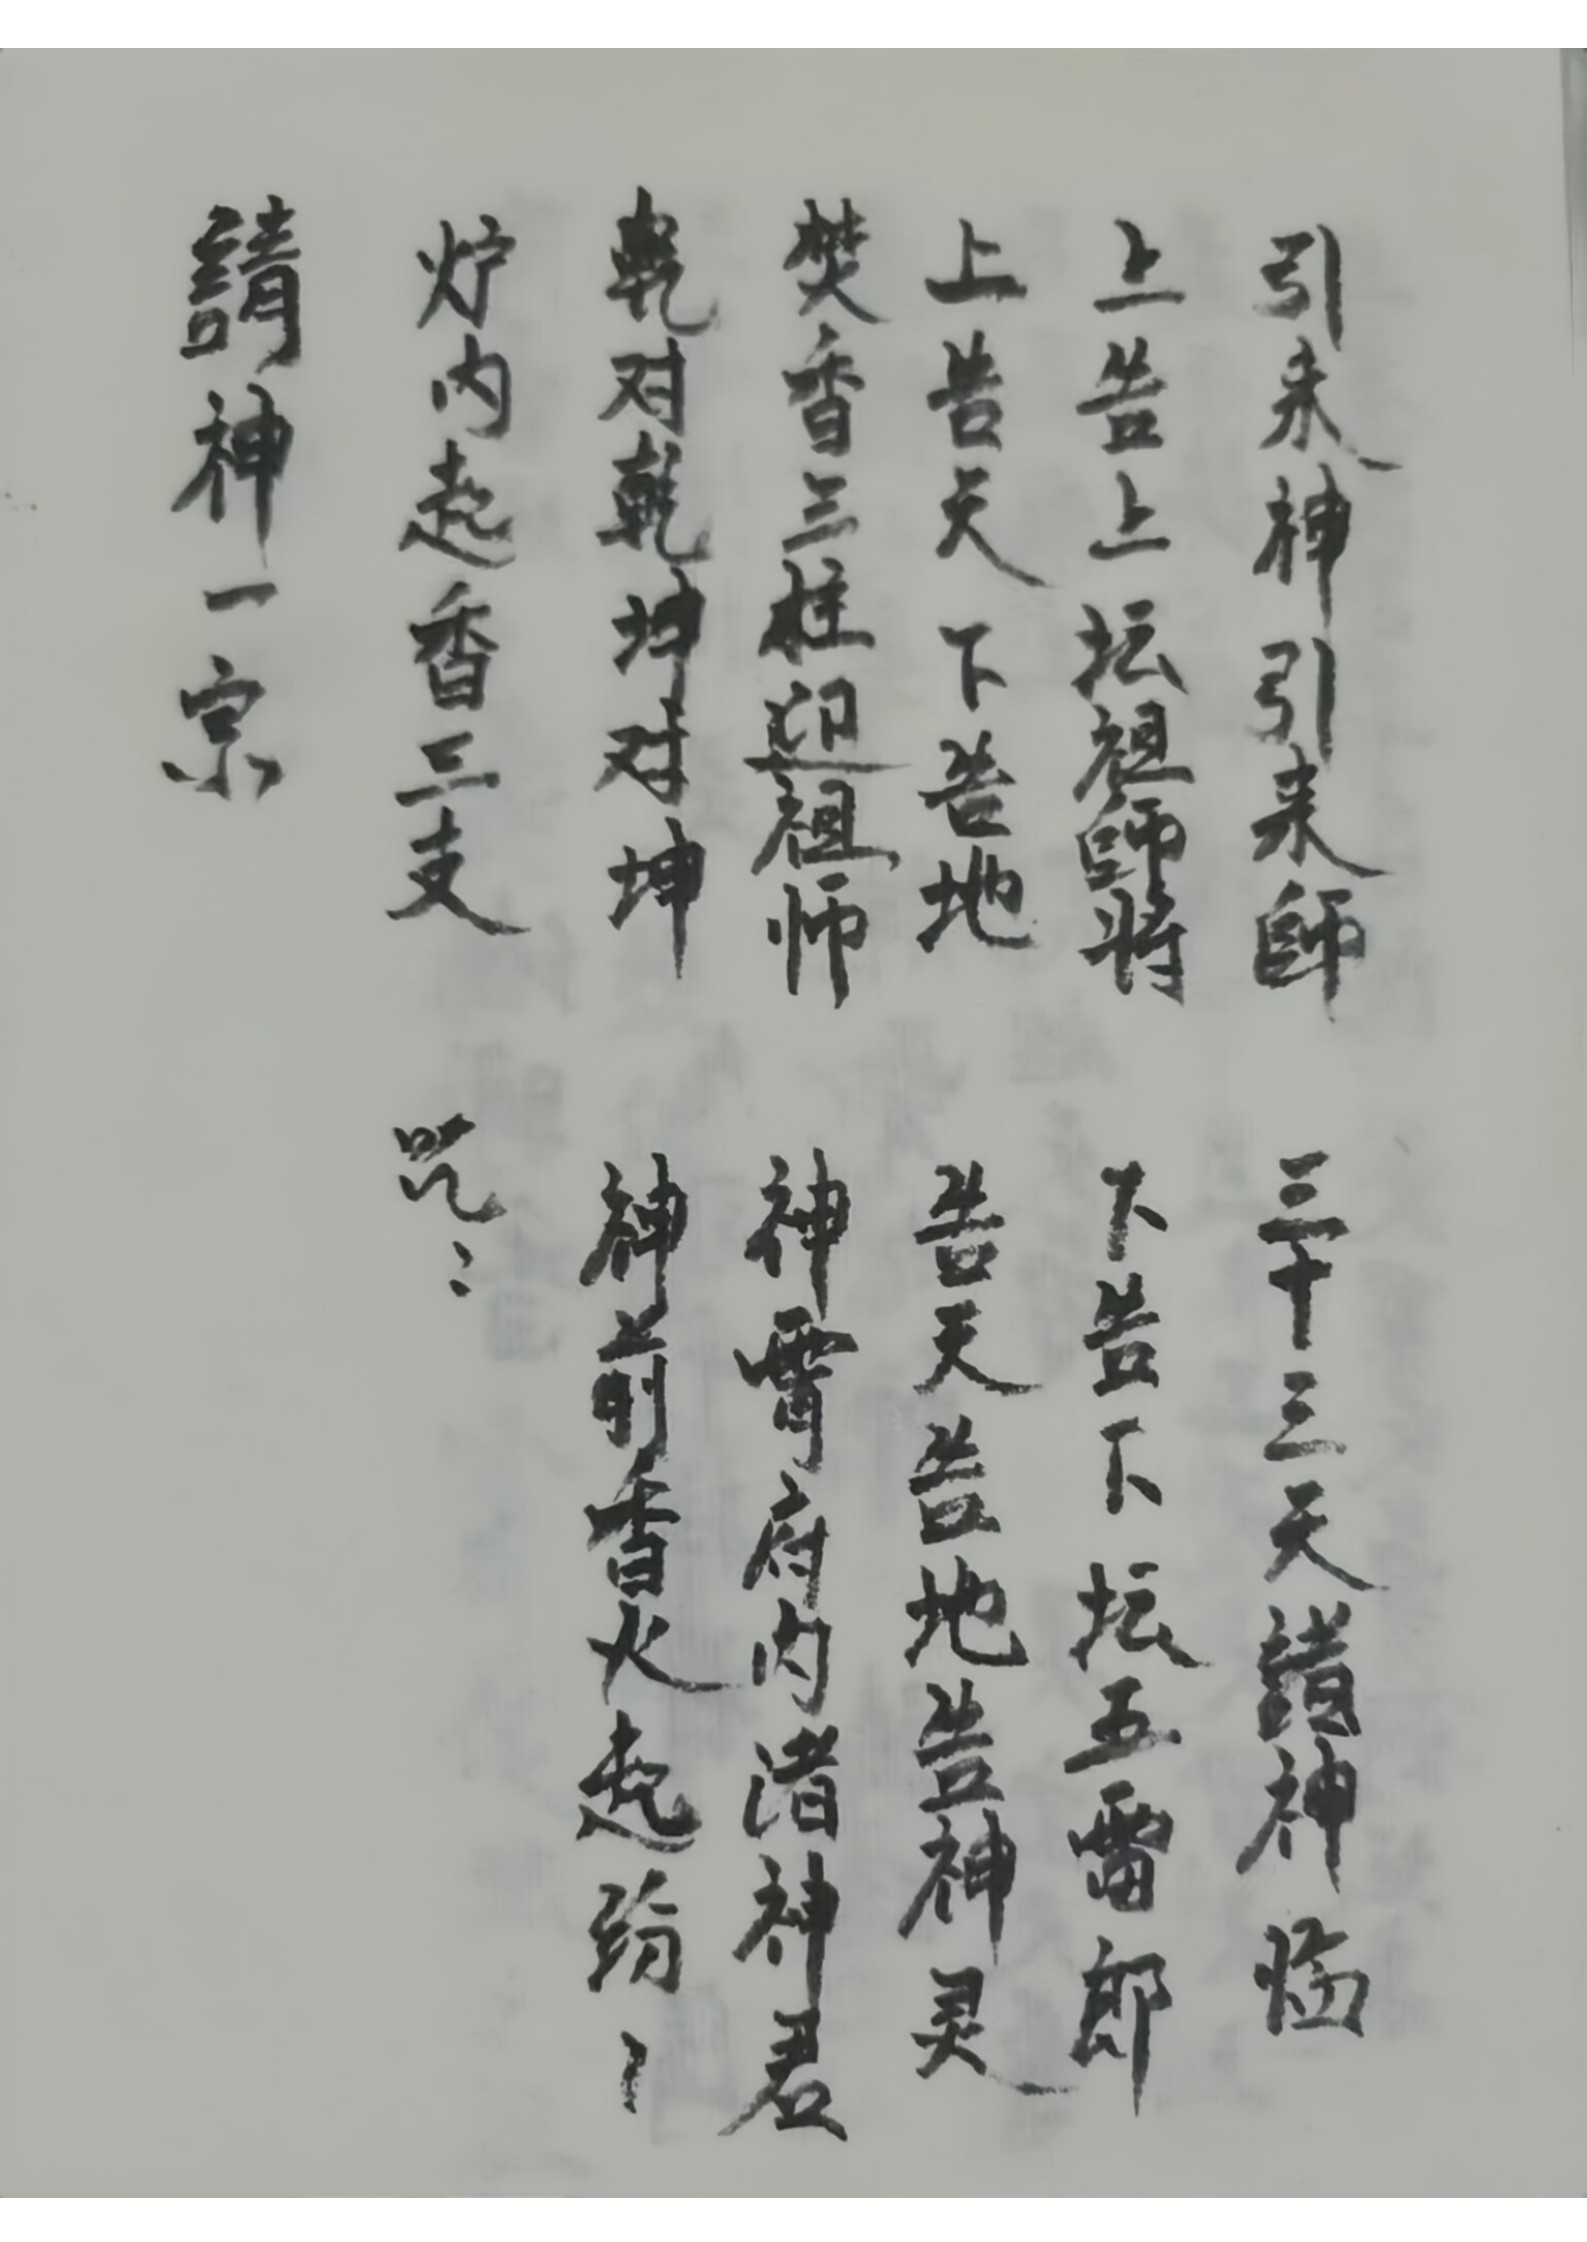 引来神引来師 三十三天諸神临
上告上坛祖師将 下告下坛五雷郎
上告天下告地 告天告地告神灵
焚香三柱迎祖师 神霄府内渚神君
乾对乾坤对坤 神前香火起纷〻
炉内起香三支 咒〻
請神一宗